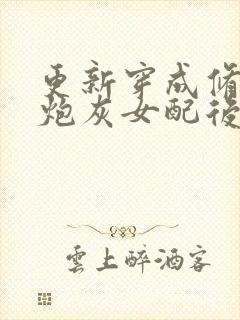 更新穿成脩
炮灰女配後
雲上醉酒客